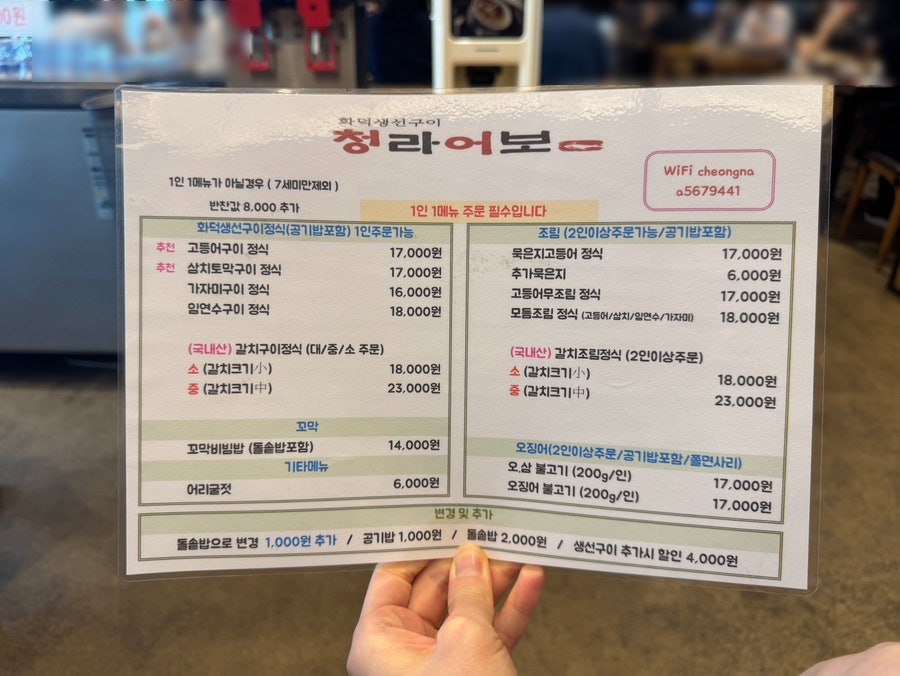 00원
화덕생선구이
청라어보
WiFi cheongna
a5679441
1인 1메뉴가 아닐경우 ( 7세미만제외 )
반찬값 8,000 추가
1인 1메뉴 주문 필수입니다
화덕생선구이정식(공기밥포함) 1인주문가능
추천 고등어구이 정식 17,000원
추천 삼치토막구이 정식 17,000원
가자미구이 정식 16,000원
임연수구이 정식 18,000원
(국내산) 갈치구이정식 (대/중/소 주문)
소 (갈치크기小) 18,000원
중 (갈치크기中) 23,000원
꼬막
꼬막비빔밥 (돌솥밥포함) 14,000원
기타메뉴
어리굴젓 6,000원
조림 (2인이상주문가능/공기밥포함)
묵은지고등어 정식 17,000원
추가묵은지 6,000원
고등어무조림 정식 17,000원
모듬조림 정식 (고등어/삼치/임연수/가자미) 18,000원
(국내산) 갈치조림정식 (2인이상주문)
소 (갈치크기小) 18,000원
중 (갈치크기中) 23,000원
오징어(2인이상주문/공기밥포함/쫄면사리)
오.삼 불고기 (200g/인) 17,000원
오징어 불고기 (200g/인) 17,000원
변경 및 추가
돌솥밥으로 변경 1,000원 추가 / 공기밥 1,000원 / 돌솥밥 2,000원 / 생선구이 추가시 할인 4,000원